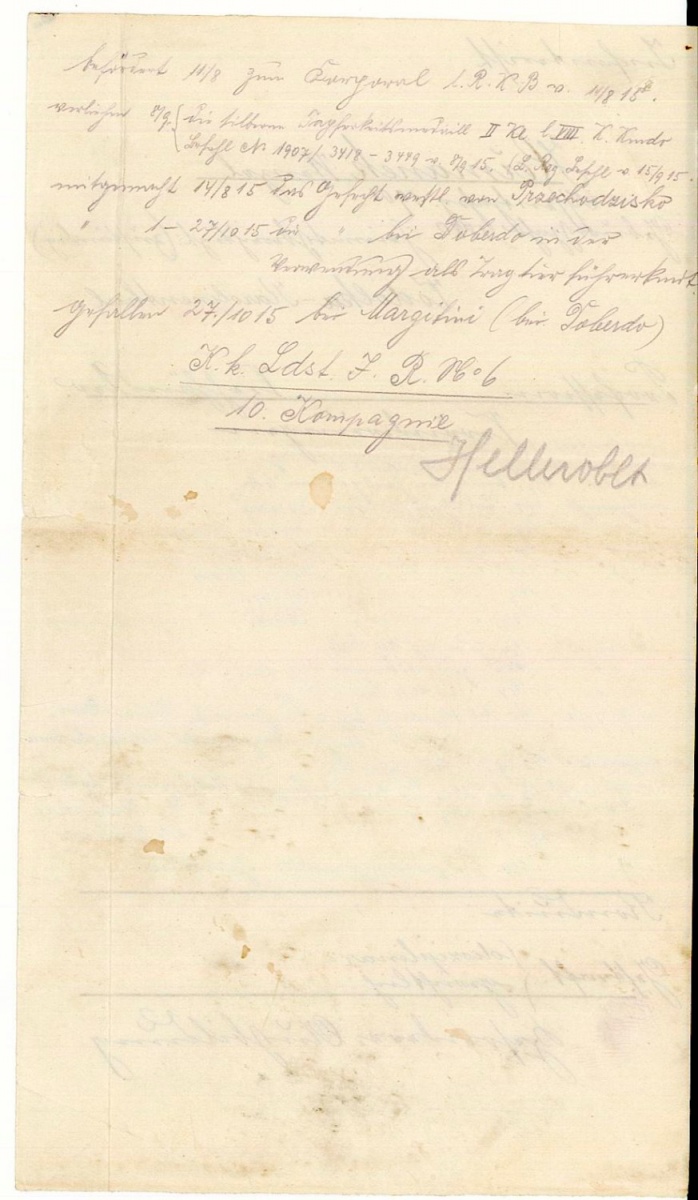 befördert 11/8 zum Korporal l. R. K. B v. 11/8 15.
verliehen 8/9. die silberne Tapferkeitsmedaill II Kl l. VIII. K. Kmdo
Befehl № 1907/. 3419 – 3449 v. 8/9 15. (L. Rg Befehl v 15/9 15.
mitgemacht 14/8 15 das Gefecht westl. von Przechodzisko
" 1 – 27/10 15 die bei Doberdo in der
Verwendung als Tragtierführerkmdt
Gefallen 27./10 15 bei Margitini (bei Doberdo)
K. k. Ldst. I. R. No 6
10. Kompagnie